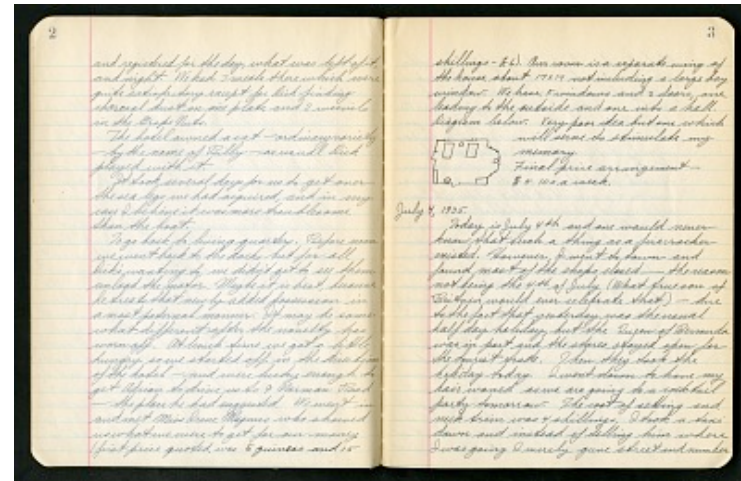 2
and registered for the day, what was left of it
and night. We had 2 meals there which were
quite satisfactory except for Dick finding
charcoal dust on one plate and 2 weevils
in the Grape Nuts.
The hotel owned a cat - ordinary variety
by the name of Billy - as usual Dick
played with it.
It took several days for us to get over
the sea legs we had acquired, and in my
case I believe it was more troublesome
than the boat.
To go back to living quarters. Before noon
we went back to the docks but for all
Dick's wanting to we didn't get to see them
unload the motor. Maybe it is best, because
he treats that newly added possession in
a most paternal manner. It may be some
what different after the novelty has
worn off. At lunch time we got a little
hungry so we started off in the direction
of the hotel - and were lucky enough to
get to drive us to 9 Norman Road
- the place he had suggested. We went in
and met Miss who showed
us what we were to get for our money
(first price quoted was 5 guineas and 15
3
shillings - £6). Our room is a separate wing of
the house about not including a large bay
window. We have windows and 2 doors, one
leading to the outside and one into a hall
Diagram below. Very poor idea but one which
will serve to stimulate my
memory.
Final price arrangement -
a week.
July 4, 1935
Today is July 4th and one would never
know that such a thing as a firecracker
existed. However, I went to town and
found most of the shops closed - the reason
not being the 4th of July (What true son of
Britain would ever celebrate that) - due
to the fact that yesterday was the usual
half day holiday but the Queen of Bermuda
was in port and the stores stayed open for
the tourist trade. Then they took the
holiday today. I went down to have my
hair waved as we are going to a cocktail
party tomorrow. The cost of setting and
neck trim was 4 shillings. I took a taxi
down and instead of telling him where
I was going I merely gave street and number